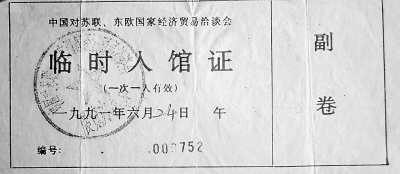 中国对苏联、东欧国家经济贸易洽谈会
临时入馆证
(一次一人有效)
一九九一年六月24日 午
编号: .000752
副卷